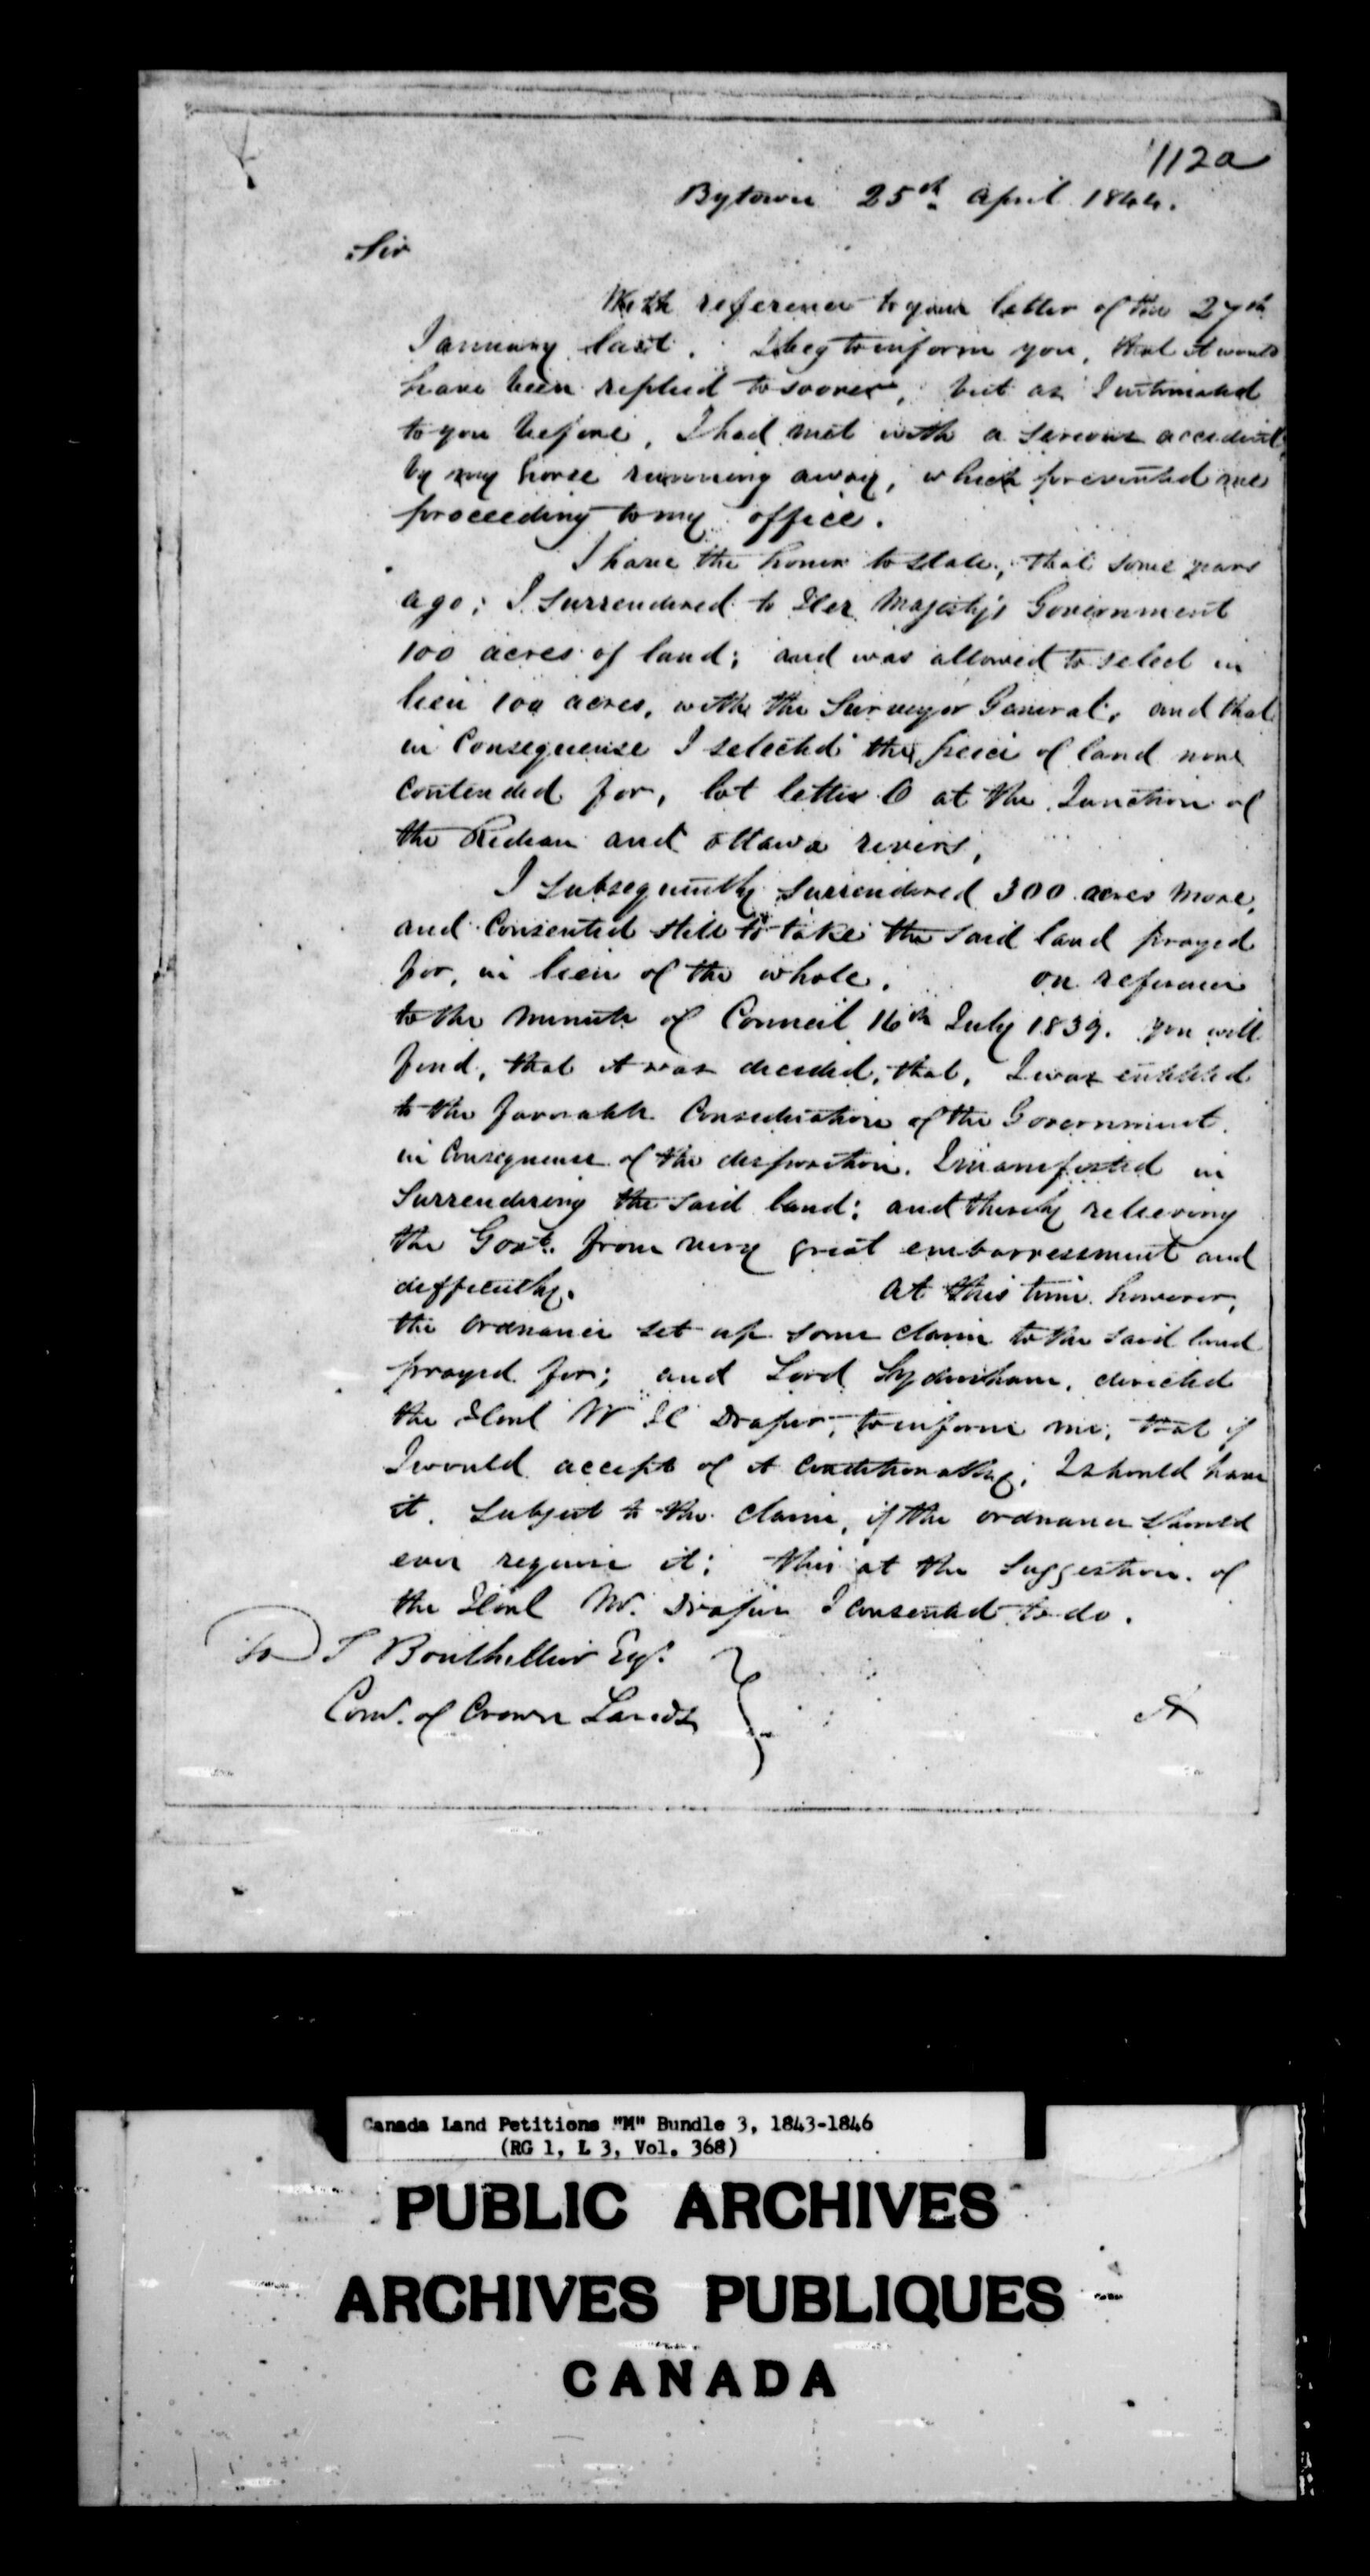 112a
Bytown 25th April 1844.
Sir
With reference to your letter of the 27th
January last. I beg to inform you, that it would
have been replied to sooner, but as I intimated
to you before, I had met with a serious accident
by my horse running away, which prevented me
proceeding to my office.
I have the honor to state, that some years
ago; I surrendered to Her Majesty's Government
100 acres of land; and was allowed to select in
lieu 100 acres, with the Surveyor General, and that
in Consequense I selected the peice of land now
Contended for, lot letter O at the Junction of
the Rideau and Ottawa rivers,
I subsequently surrendered 300 acres more,
and Consented still to take the said land prayed
for, in lieu of the whole. on reference
to the minute of Council 16th July 1839. you will
find, that it was decided, that, I was entitled
to the favorable Consideration of the Government
in Consequence of the disposition. I manifested in
Surrendering the said land; and thereby releiving
the Govt. from very great embarressment and
difficulty. At this time however,
the Ordnance set up some claim to the said land
prayed for; and Lord Sydenham, directed
the Honl W H Draper, to inform me, that if
I would accept of it Conditionally; I should have
it. Subject to the claim, if the ordnance should
ever require it; this at the Suggestion. of
the Honl Mr. Draper I consented to do.
To T Bouthillier Esqr.
Comr. of Crown Lands
Canada Land Petitions "M" Bundle 3, 1843-1846
(RG 1, L 3, Vol. 368)
PUBLIC ARCHIVES
ARCHIVES PUBLIQUES
CANADA